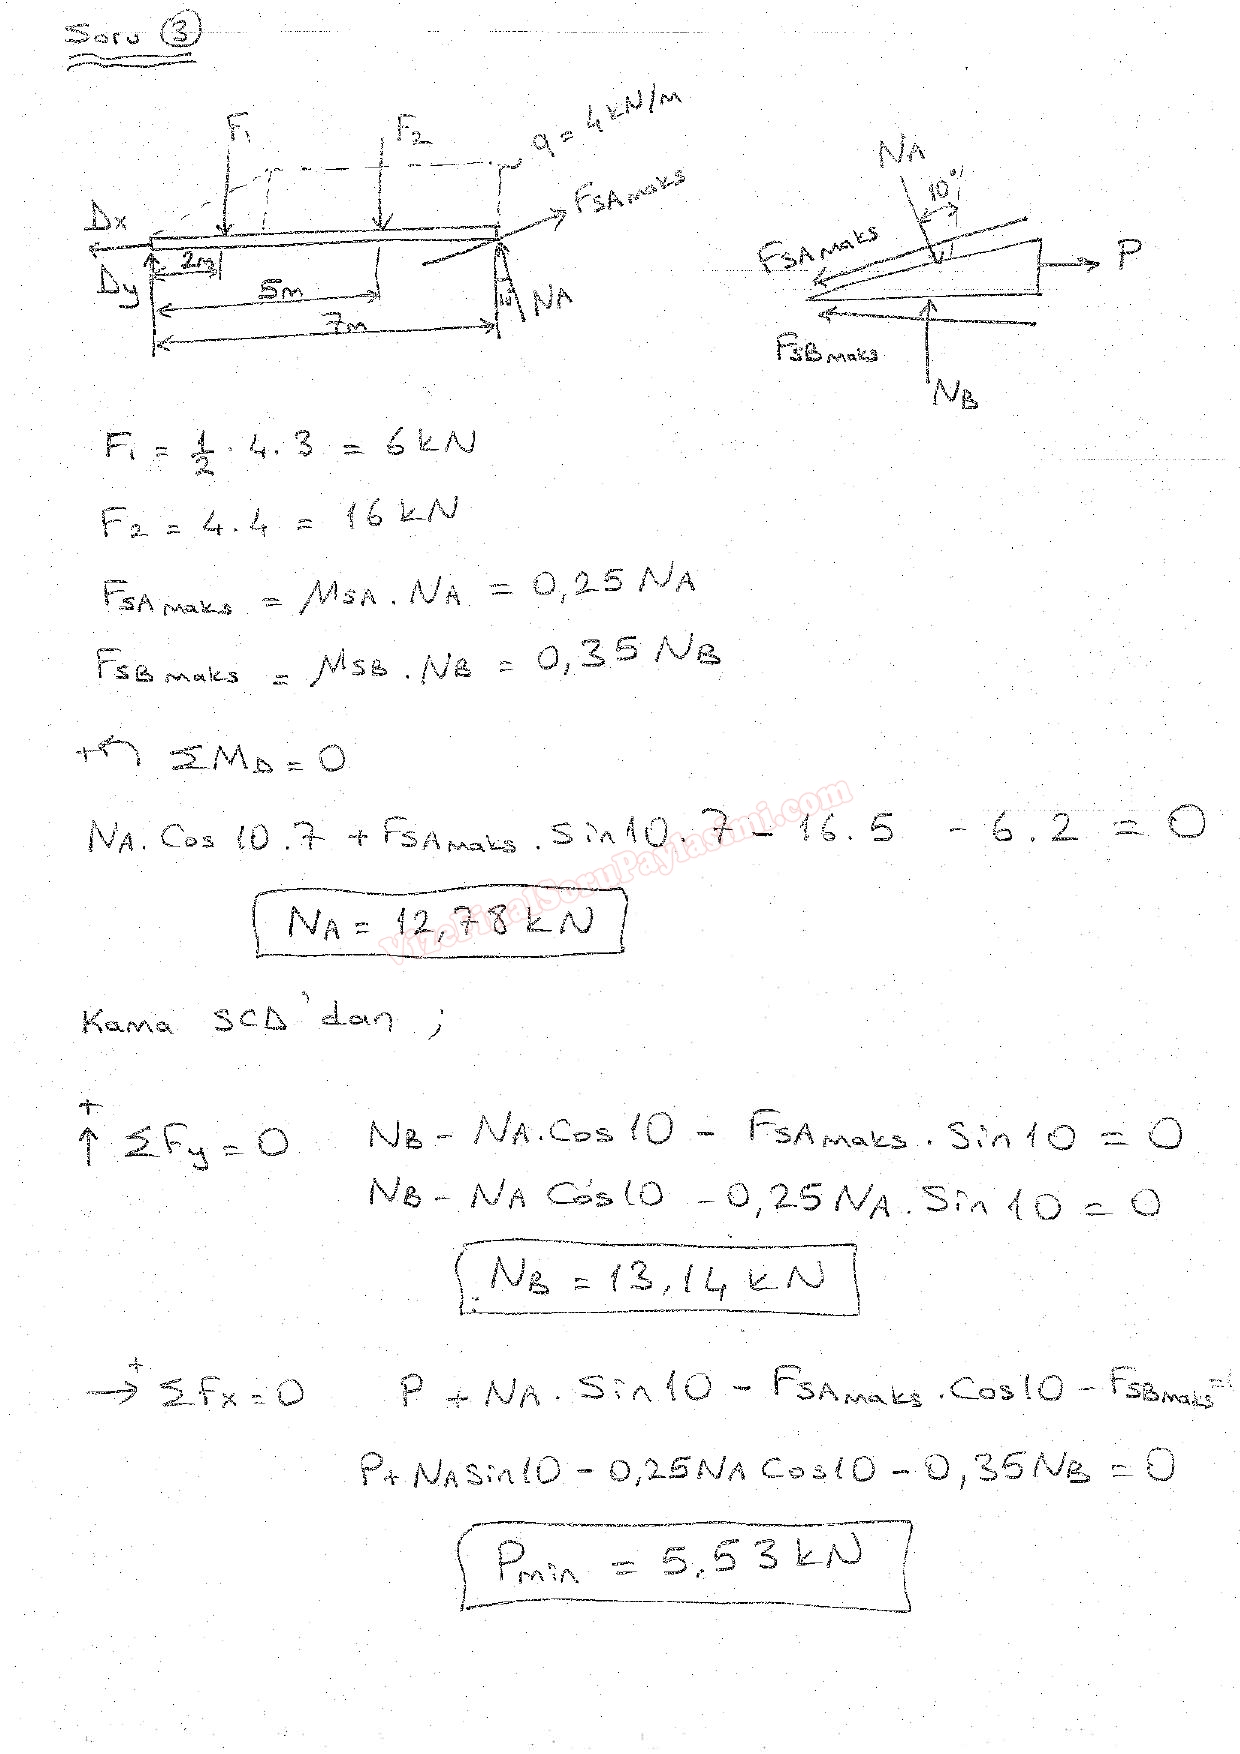 Soru 3
F1
F2
q = 4 kN/m
FSAmaks
Dx
Dy
2m
5m
7m
NA
NA
10°
FSAmaks
P
FSBmaks
NB
F1 = 1/2 . 4 . 3 = 6 kN
F2 = 4 . 4 = 16 kN
FSAmaks = MSA . NA = 0,25 NA
FSBmaks = MSB . NB = 0,35 NB
+↶ ΣMD = 0
NA . Cos 10 . 7 + FSAmaks . Sin 10 . 7 - 16 . 5 - 6 . 2 = 0
NA = 12,78 kN
VizeFinalSoruPaylasimi.com
Kama SCD'dan ;
+↑ ΣFy = 0 NB - NA . Cos 10 - FSAmaks . Sin 10 = 0
NB - NA Cos 10 - 0,25 NA . Sin 10 = 0
NB = 13,14 kN
→+ ΣFx = 0 P + NA . Sin 10 - FSAmaks . Cos 10 - FSBmaks =
P + NA Sin 10 - 0,25 NA Cos 10 - 0,35 NB = 0
Pmin = 5,53 kN